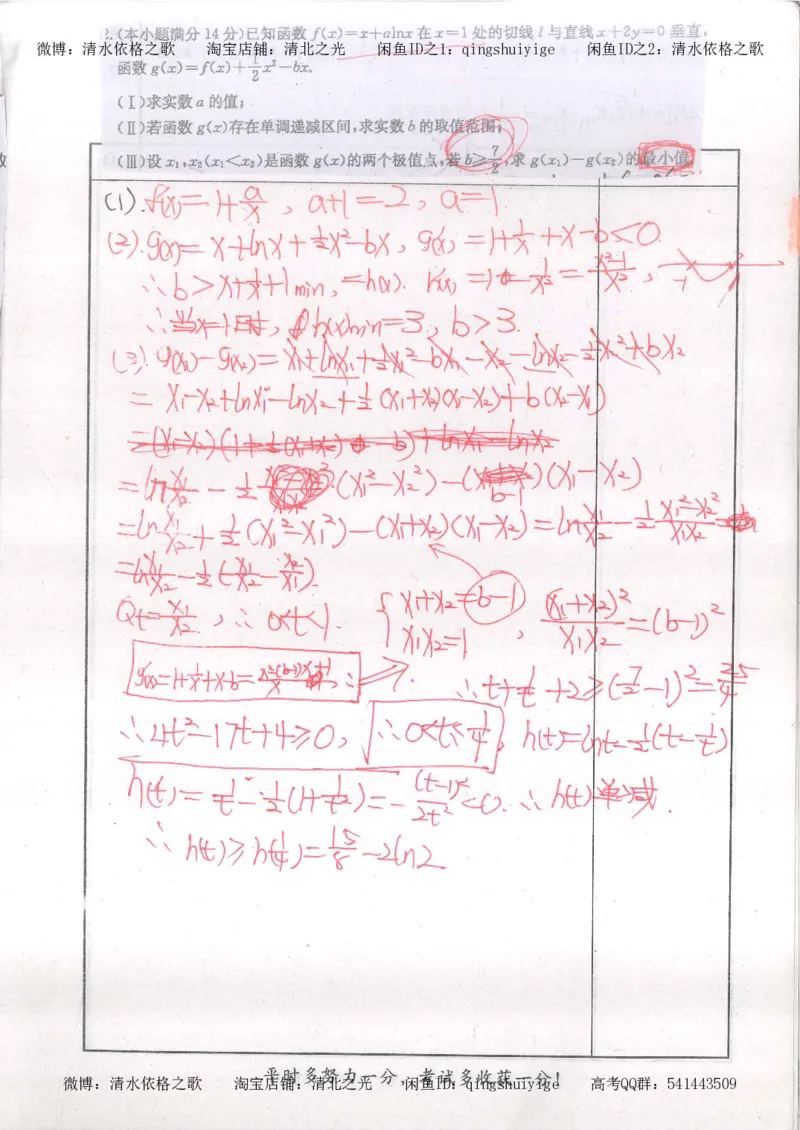 2.(本小题满分14分)已知函数 f(x)=x+alnx 在 x=1 处的切线 l 与直线 x+2y=0 垂直,
微博：清水依格之歌 淘宝店铺：清北之光 闲鱼ID之1：qingshuiyige 闲鱼ID之2：清水依格之歌
函数 g(x)=f(x)+1/2x²-bx.
(Ⅰ)求实数 a 的值;
(Ⅱ)若函数 g(x)存在单调递减区间,求实数 b 的取值范围;
(Ⅲ)设 x₁,x₂(x₁<x₂)是函数 g(x)的两个极值点,若 b≥7/2,求 g(x₁)-g(x₂)的最小值.
(1). f'(x)=1+a/x, a+1=2, a=1
(2). g(x)=x+lnx+1/2x²-bx, g'(x)=1+1/x+x-b<0.
∴b>x+1/x+1 min, =h(x). h'(x)=1-1/x²=x²-1/x²,
-1
∴当x=1时, h(x)min=3, b>3.
(3). g(x₁)-g(x₂)=x₁+lnx₁+1/2x₁²-bx₁-x₂-lnx₂-1/2x₂²+bx₂
=x₁-x₂+lnx₁-lnx₂+1/2(x₁+x₂)(x₁-x₂)+b(x₂-x₁)
=ln x₁/x₂ - 1/2(x₁²-x₂²)-(b-1)(x₁-x₂)
=ln x₁/x₂+1/2(x₁²-x₁²)-(x₁+x₂)(x₁-x₂)=ln x₁/x₂-1/2 x₁²-x₂²/x₁x₂
=ln x₁/x₂-1/2(x₁/x₂-x₂/x₁).
Qt=x₁/x₂, ∴0<t<1 { x₁+x₂=b-1 x₁x₂=1 , (x₁+x₂)²/x₁x₂=(b-1)²
g'(x)=1+1/x+x-b=x²-(b-1)x+1/x, ∴
∴t+1/t+2≥(7/2-1)²=25/4
∴4t²-17t+4≥0, ∴0<t≤1/4, h(t)=lnt-1/2(t-1/t)
h'(t)=1/t-1/2(1+1/t²)=-(t-1)²/2t²<0. ∴h(t)单减.
∴h(t)≥h(1/4)=15/8-2ln2
平时多努力一分，考试多收获一分!
微博：清水依格之歌 淘宝店铺：清北之光 闲鱼ID：qingshuiyige 高考QQ群：541443509